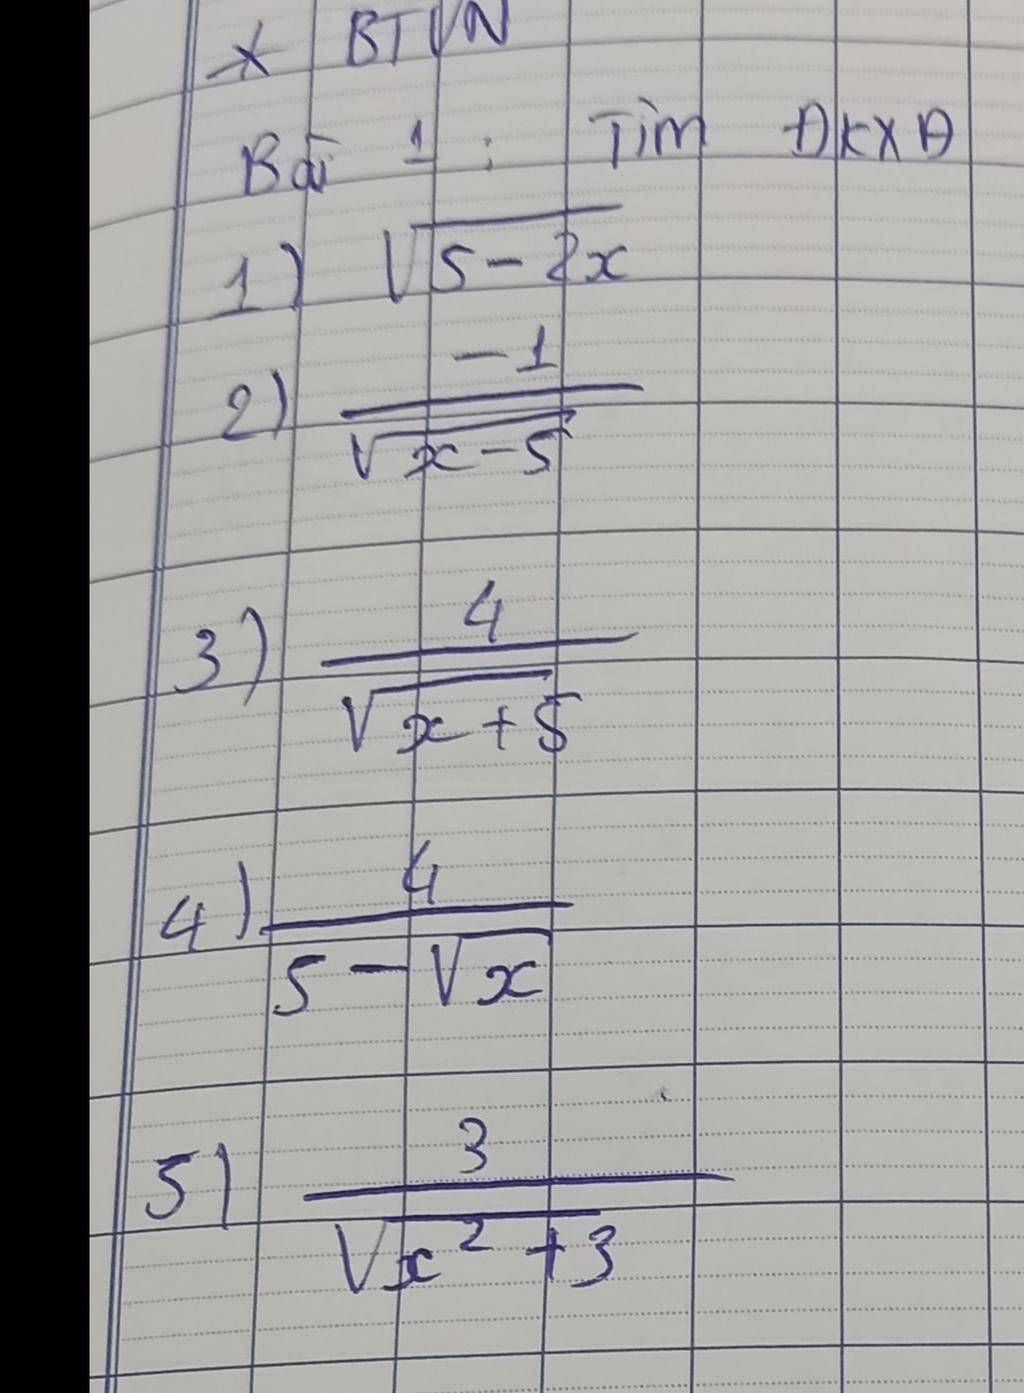 * BTVN
Bài 1 : Tìm ĐKXĐ
1) √(5 - 2x)
2) -1 / √(x - 5)
3) 4 / √(x + 5)
4) 4 / (5 - √x)
5) 3 / √(x² + 3)